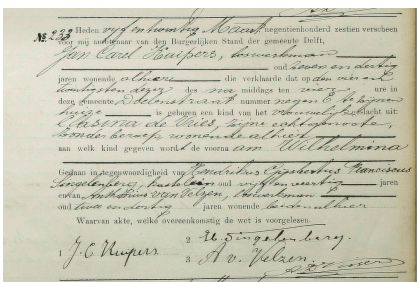 № 233 Heden vyf en twintig Maart negentienhonderd zestien verscheen
voor mij ambtenaar van den Burgerlijken Stand der gemeente Delft,
Jan Carel Kuipers, loswerkman
oud zeven en dertig
jaren wonende alhier die verklaarde dat op den vier en
twintigsten dezer des na middags ten vier ure in
deze gemeente Doelenstraat nummer negen E te zijnen
huize is geboren een kind van het vrouwelijk geslacht uit:
Casina de Vries, zijne echtgenoote,
zonder beroep wonende alhier
aan welk kind gegeven wordt de voornaam Wilhelmina
Gedaan in tegenwoordigheid van Hendrikus Franciscus
Singelenberg, oud vijf en veertig jaren
en van Anthonius van Velzen,
oud twee en dertig jaren wonende beiden alhier
Waarvan akte, welke overeenkomstig de wet is voorgelezen.
1 J. C. Kuipers 2 H. Singelenberg.
3 A. v. Velzen